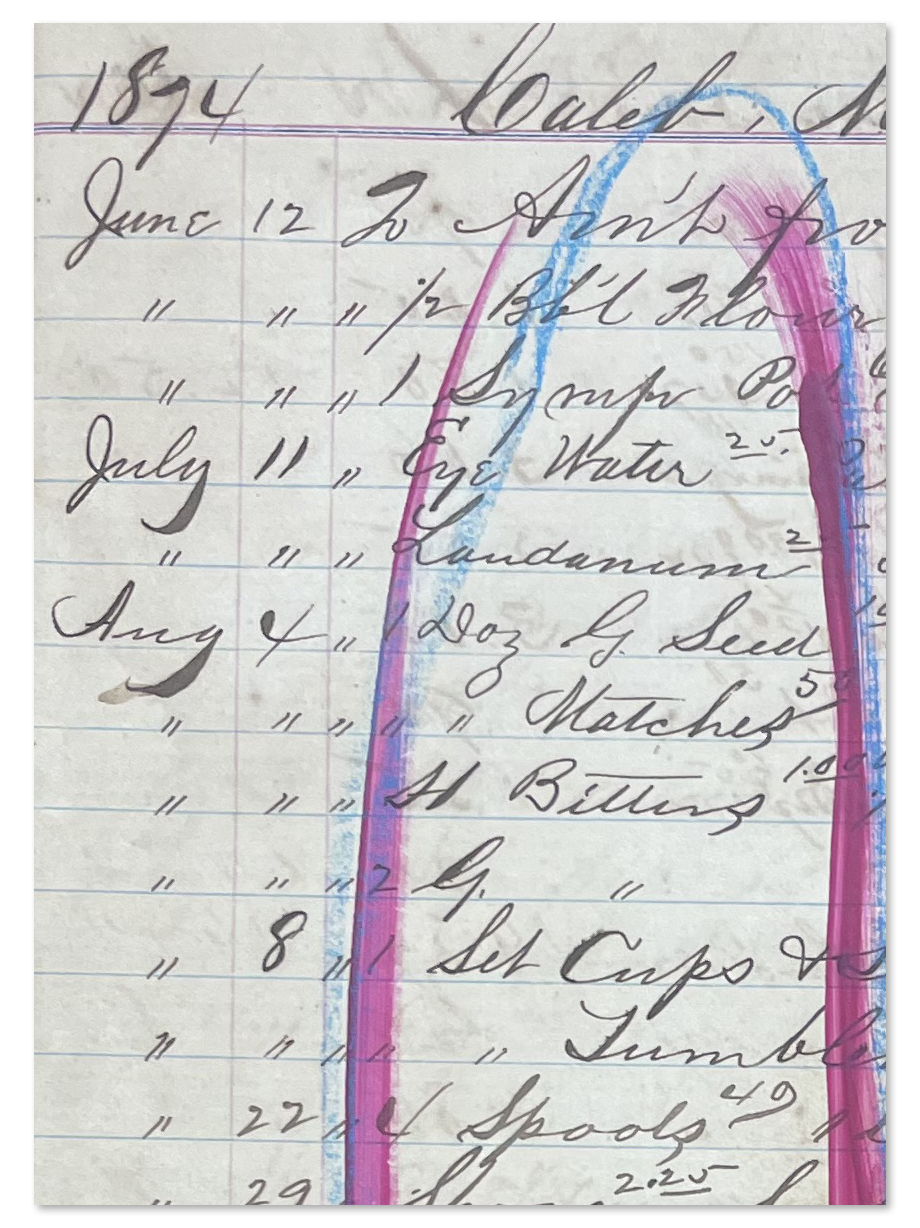 1874 Caleb, N
June 12 To Am't fro
" " " 1/2 Bb'l Flour
" " " 1 Symp
July 11 " Eye Water 25.
" " " Laudanum 2
Aug 4 " 1 Doz G. Seed 10
" " " " " Matches 50
" " " St Bitters 1.00
" " " 2 G. "
" 8 " 1 Set Cups & S
" " " " " Tumble
" 22 " 4 Spools 40
" 29 2.25